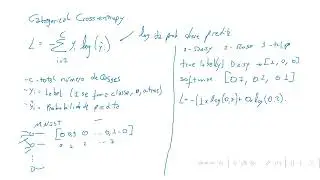 Categorical Crossentropy
L = -Σ yᵢ log(ŷᵢ)
c
i=1
log da prob classe predita
-c - total número de classes
- yᵢ - Label (1 se for a classe, 0, outros)
- ŷᵢ - Probabilidade predita
MNIST
[0,03 0 ... 0,1 - 0]
1-Daisy 2-Rose 3-tulip
true label(y) Daisy → [1, 0, 0]
softmax [0.7, 0.2, 0.1]
L = -(1 x log(0,7) + 0 x log(0.2)